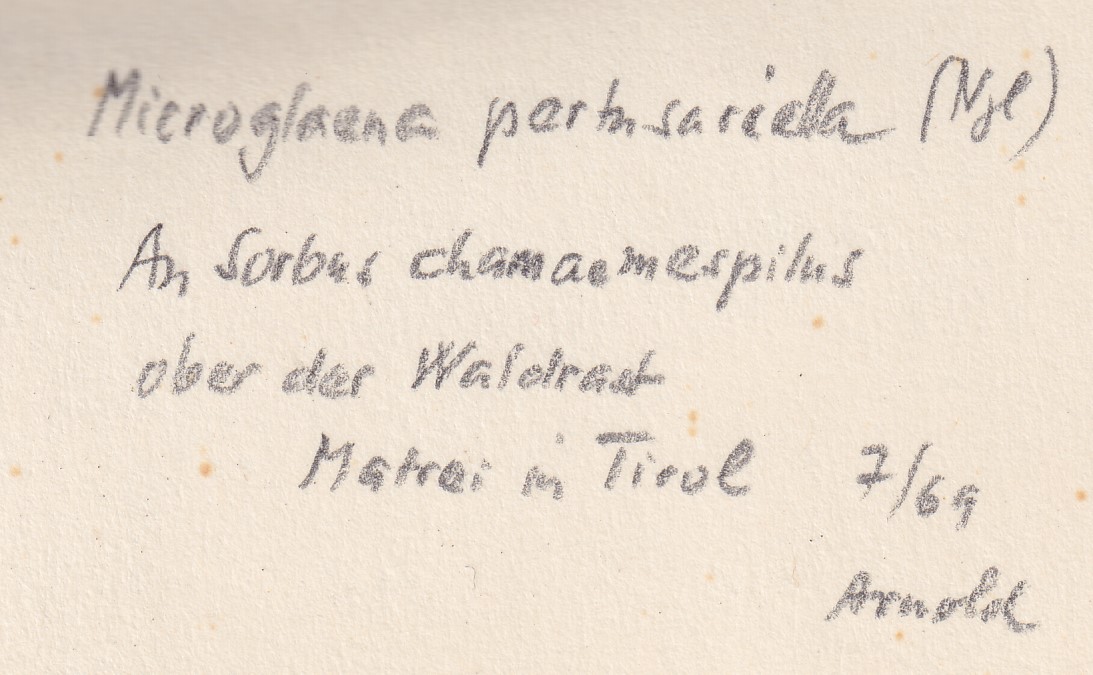 Microglaena pertusariella (Nyl)
An Sorbus chamaemespilus
ober der Waldrast
Matrei in Tirol 7/69
Arnold